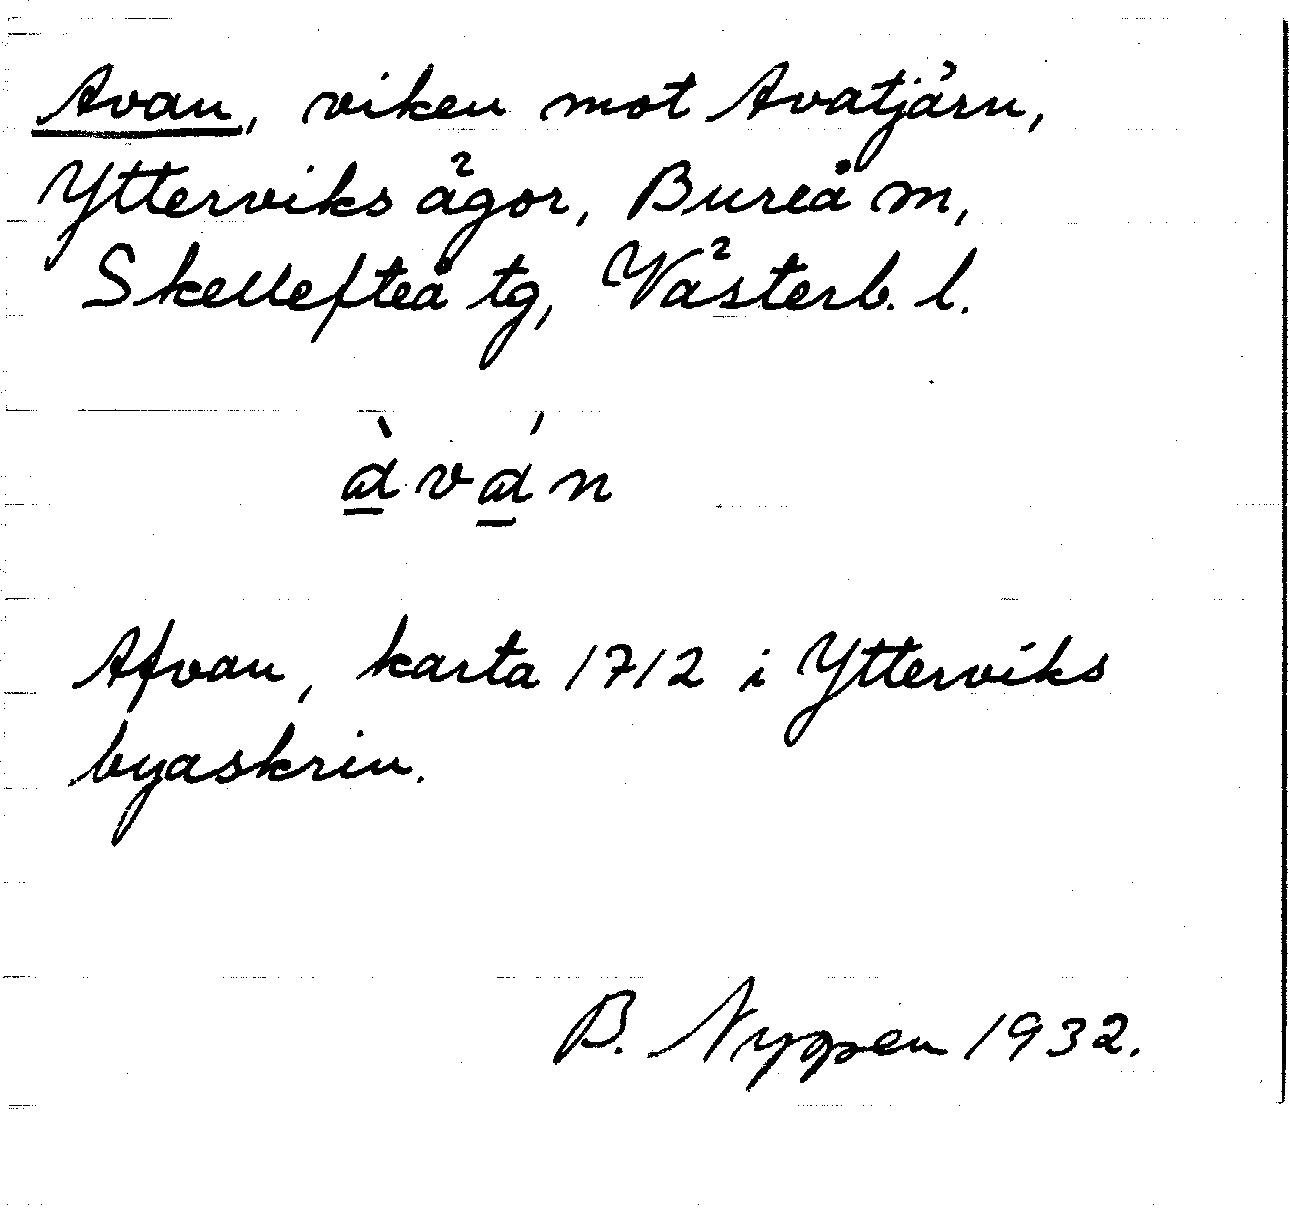 Avan, viken mot Avatjärn,
Ytterviks ägor, Bureå m,
Skellefteå tg, Västerb. l.
àván
Afvan, karta 1712 i Ytterviks
byaskrin.
B. Nyppen 1932.